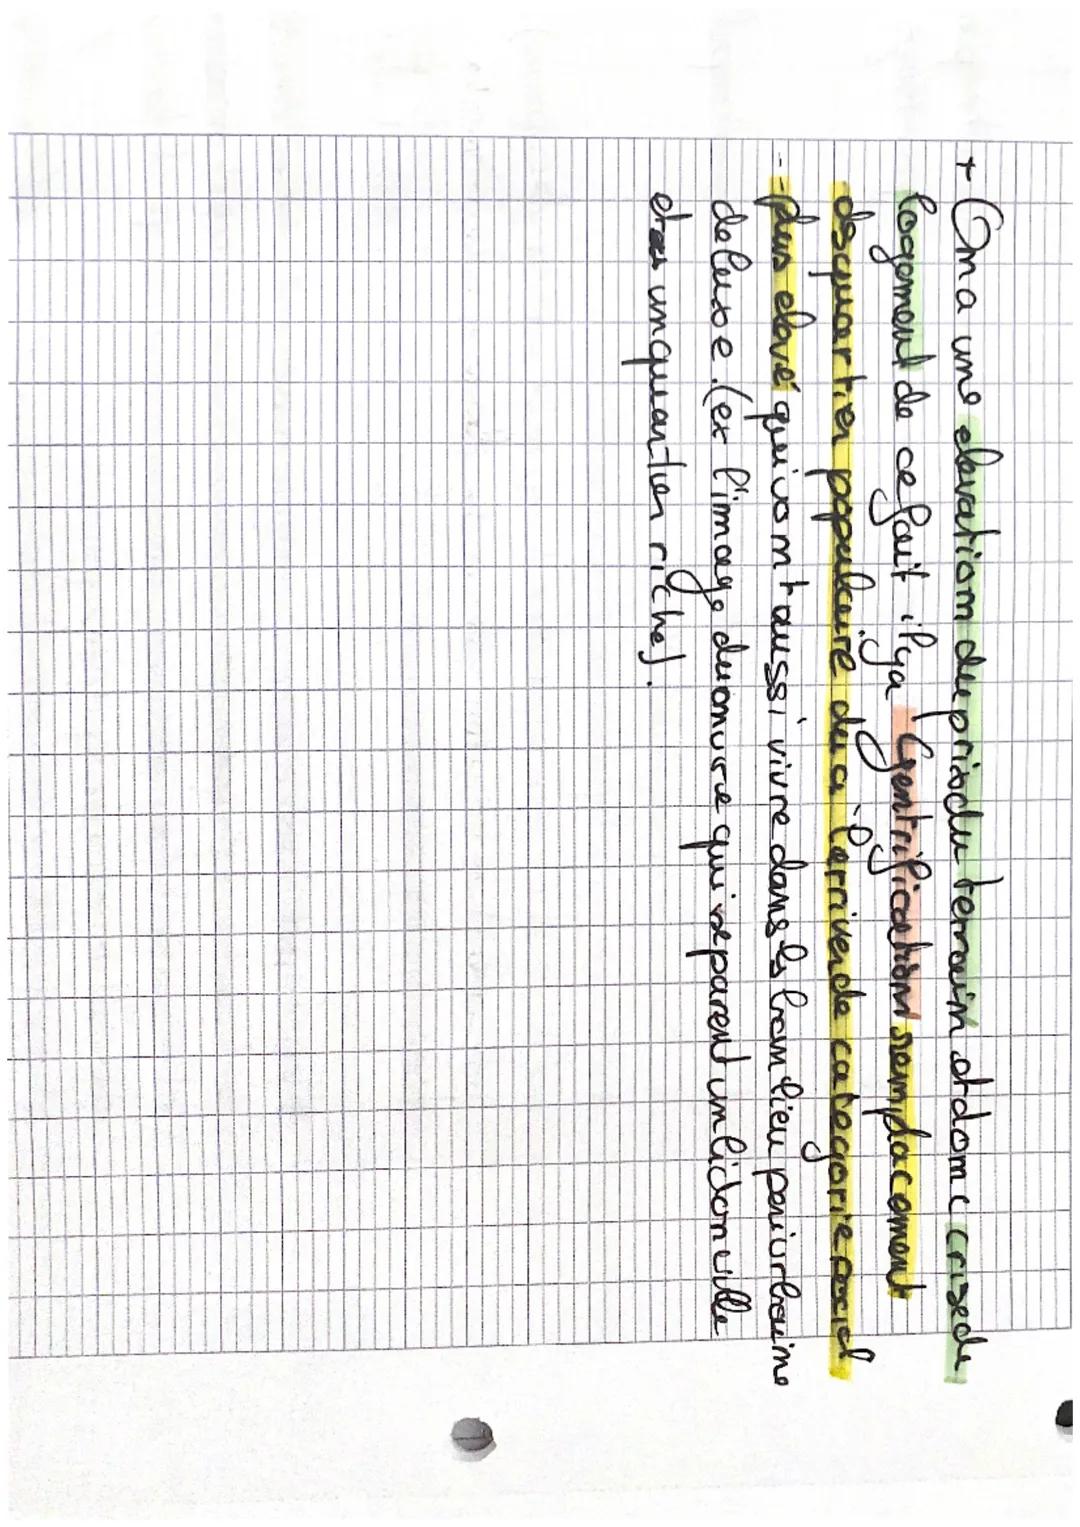 + On a une elevation du prix du terrain et donc crise de
logement de ce fait il y a Gentrification remplacement
des quartier populaire du a l'arriver de categorie social
- plus elevé qui vont aussi vivre dans ls banlieu periurbaine
de luxe. (ex l'image du mure qui separent un bidonville
et un quartier riche).